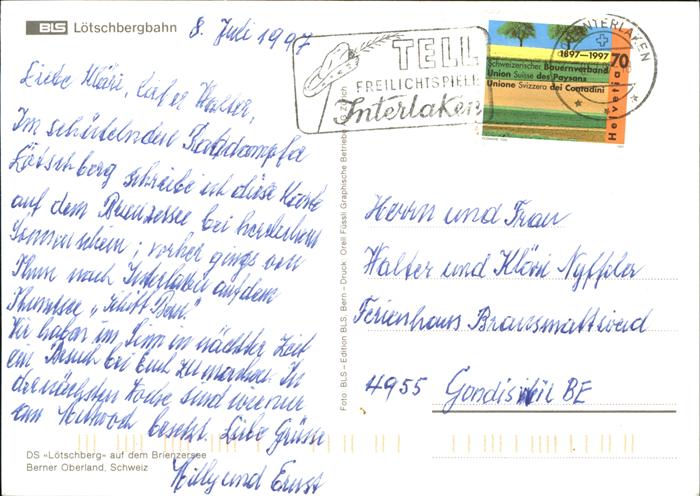 BLS Lötschbergbahn
8. Juli 1997
Liebe Kläri, Walter,
Im schüttelnden Raddampfer
Lötschberg schreibe ich diese Karte
auf dem Brienzersee bei herrlichem
Sonnenschein; vorher gings von
Thun nach Interlaken auf dem
Thunersee „Schiff Bern".
Wir haben im Sinn in nächster Zeit
ein Besuch bei Euch zu machen. In
der nächsten Woche sind wir nur
am Mittwoch besetzt. Liebe Grüsse
Willy und Ernst
DS «Lötschberg» auf dem Brienzersee
Berner Oberland, Schweiz
Foto: BLS – Edition BLS, Bern – Druck: Orell Füssli Graphische Betriebe AG Zürich
TELL
FREILICHTSPIELE
Interlaken
INTERLAKEN
1897–1997
70
Schweizerischer Bauernverband
Union Suisse des Paysans
Unione Svizzera dei Contadini
Helvetia
Herrn und Frau
Walter und Kläri Nyffeler
Ferienhaus
4955 Gondiswil BE